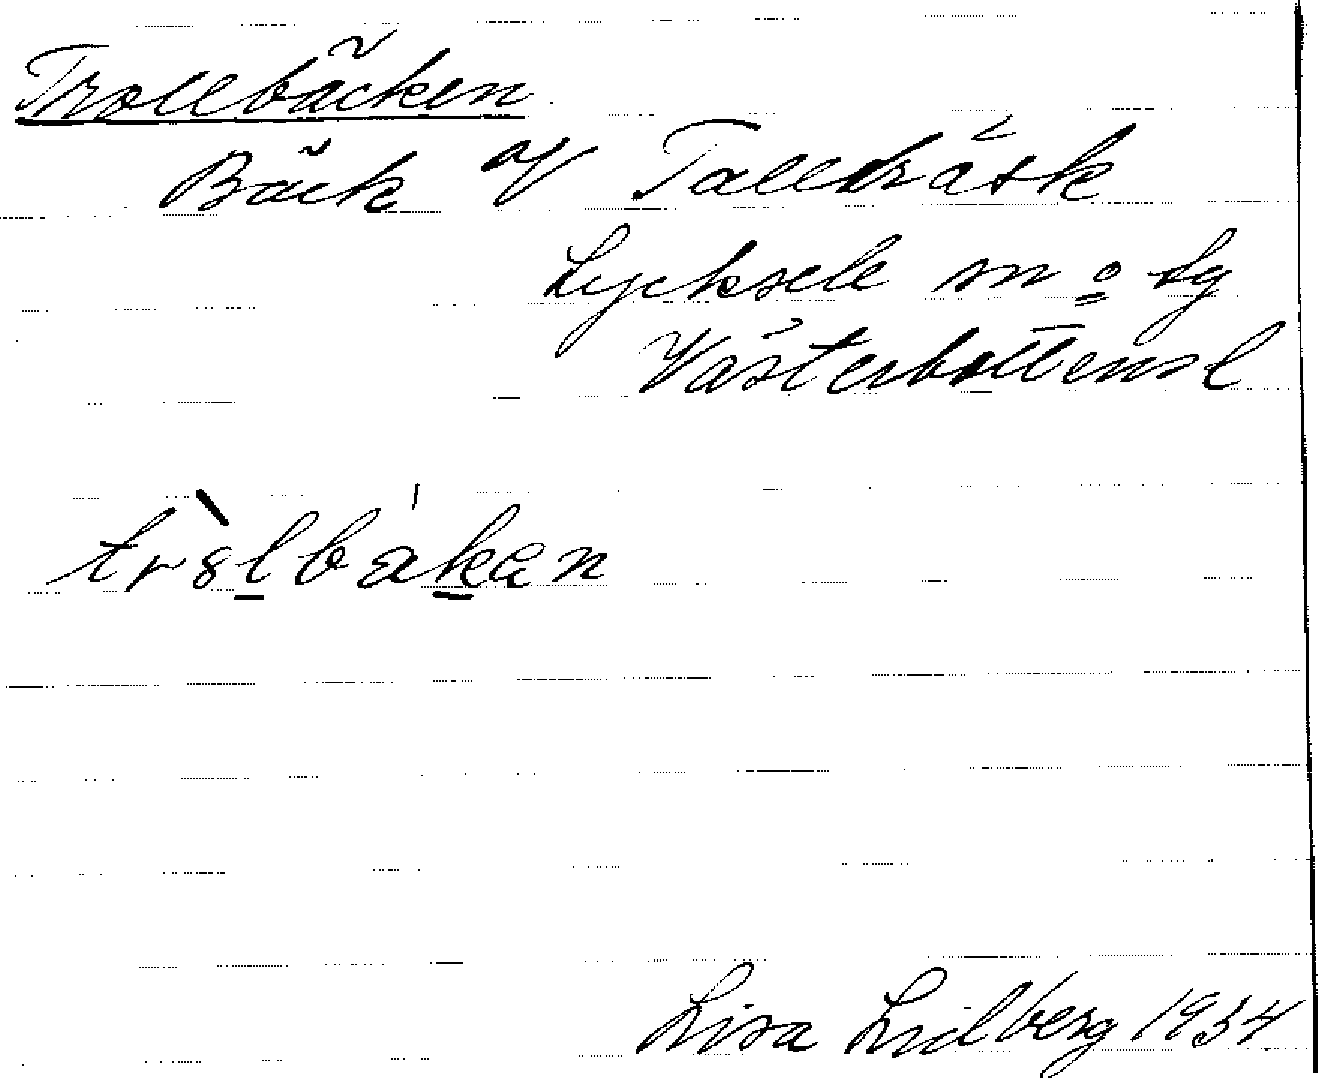 Trollbäcken
Bäck af Tallträsk
Lycksele sn o lg
Västerbottensl
tr8̀lbäkän
Lisa Lidberg 1934